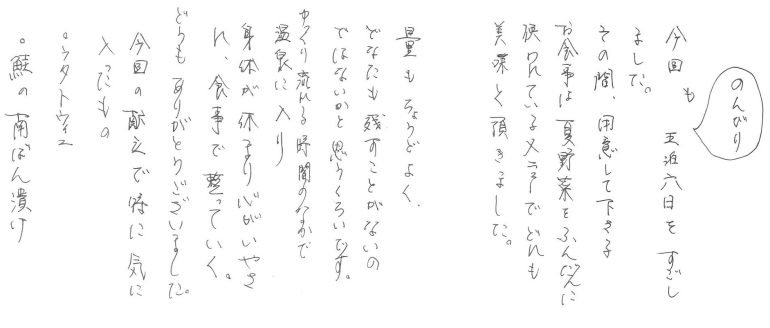 のんびり
今回も 五泊六日を すごし
ました。
その間、用意して下さる
お食事は 夏野菜をふんだんに
使われているメニューでどれも
美味しく頂きました。
量も ちょうどよく、
どなたも 残すことがないの
ではないかと 思うくらいです。
ゆっくり流れる時間のなかで
温泉に入り
身体が 休まり 心がいやさ
れ、食事で 整っていく。
どうも ありがとうございました。
今回の献立で特に気に
入ったもの
。ラタトゥイユ
。鮭の南ばん漬け